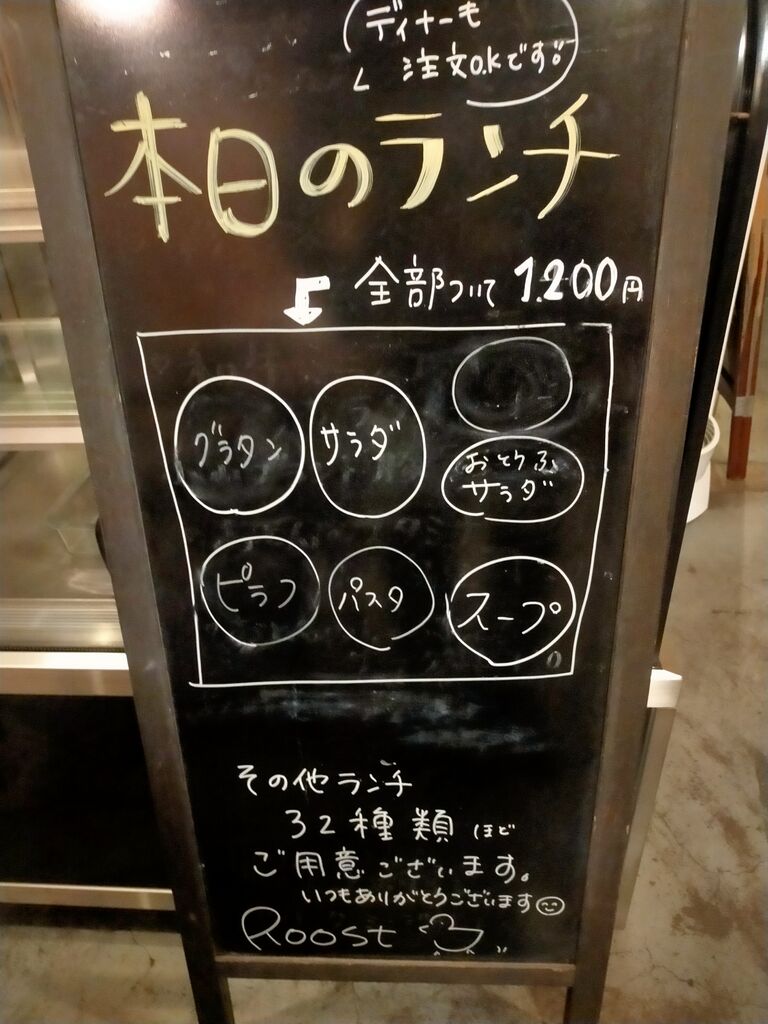 ディナーも
注文O.Kです。
本日のランチ
全部ついて 1.200円
グラタン
サラダ
おとうふ
サラダ
ピラフ
パスタ
スープ
その他ランチ
32種類ほど
ご用意ございます。
いつもありがとうございます
Roost